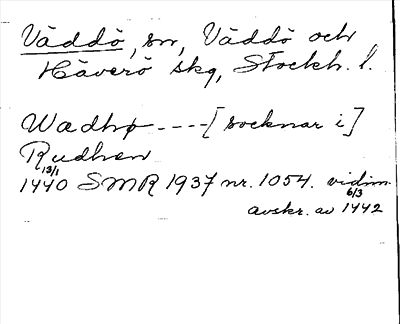 Väddö, sn, Väddö och
Häverö skg, Stockh. l.
Wædhø ---- [socknar i]
Rudhen
13/1 1440 SMR 1937 nr. 1054. vidim.
avskr. av 6/3 1442